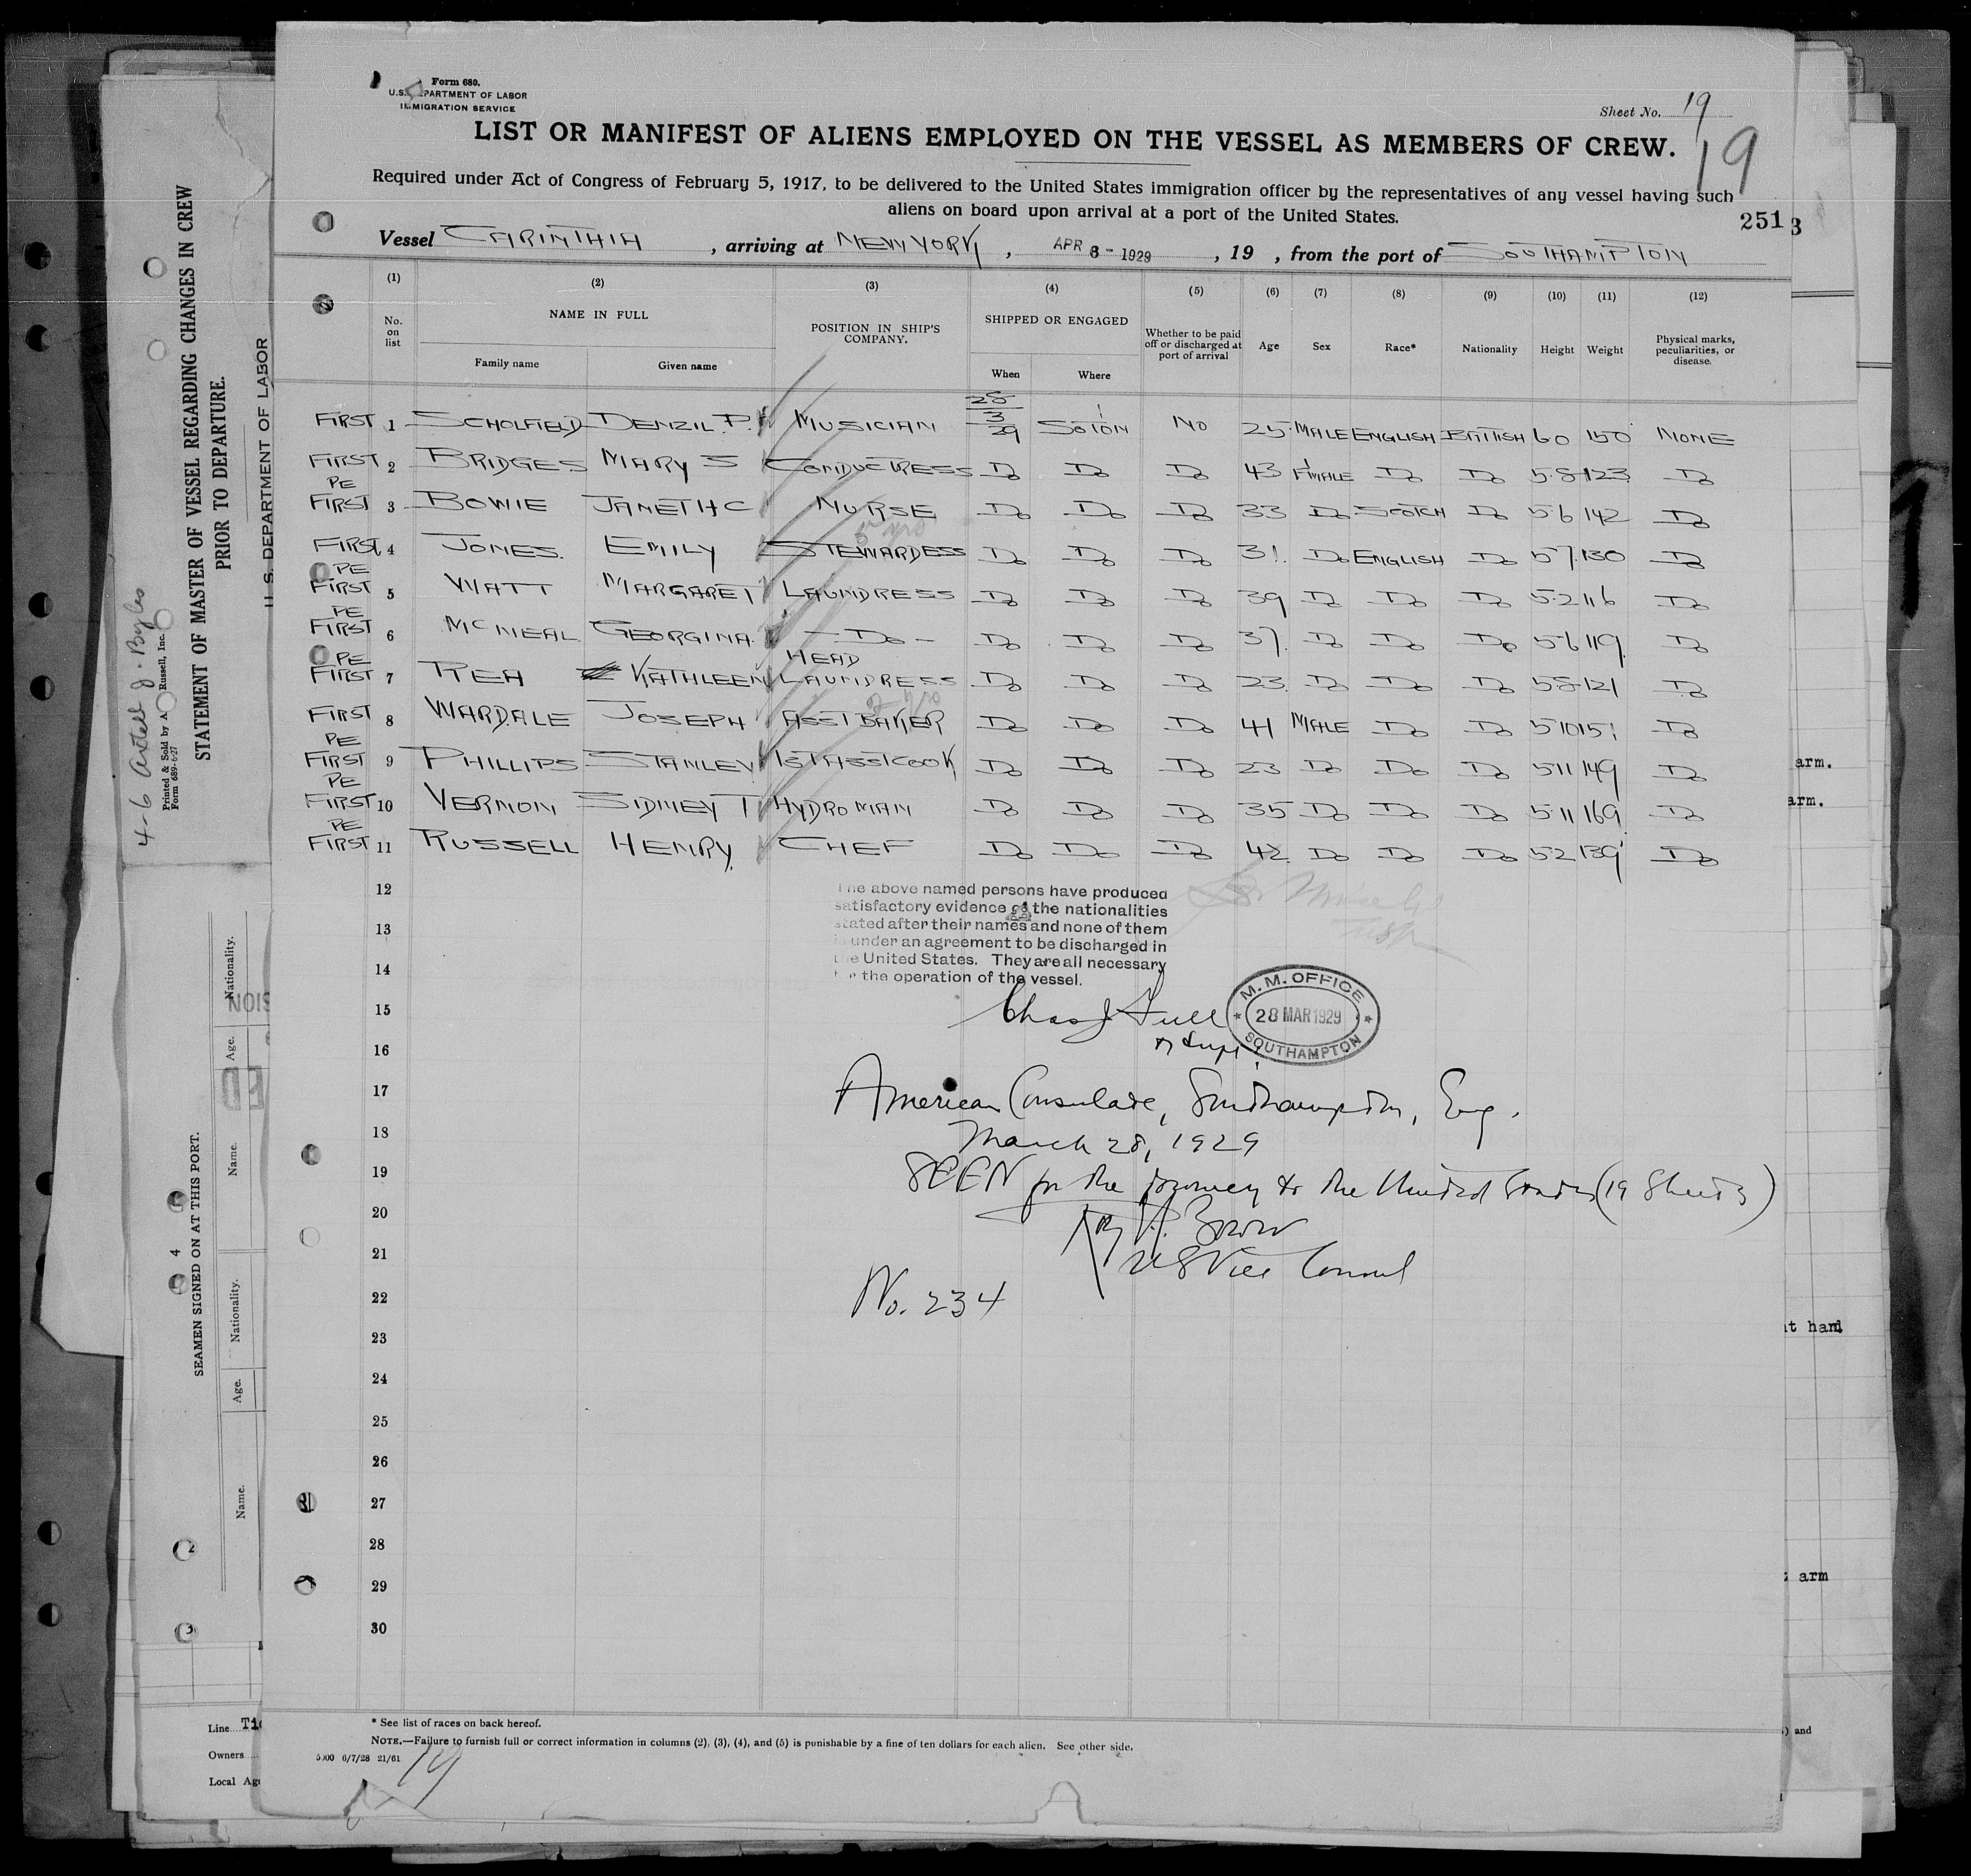 Form 680.
U.S. DEPARTMENT OF LABOR
IMMIGRATION SERVICE
Sheet No. 19
LIST OR MANIFEST OF ALIENS EMPLOYED ON THE VESSEL AS MEMBERS OF CREW.
19
Required under Act of Congress of February 5, 1917, to be delivered to the United States immigration officer by the representatives of any vessel having such
aliens on board upon arrival at a port of the United States.
2513
Vessel CARINTHIA, arriving at NEW YORK, APR 8 - 1929, 19 , from the port of SOUTHAMPTON
(1) (2) (3) (4) (5) (6) (7) (8) (9) (10) (11) (12)
No. on list NAME IN FULL Family name Given name POSITION IN SHIP'S COMPANY. SHIPPED OR ENGAGED When Where Whether to be paid off or discharged at port of arrival Age Sex Race* Nationality Height Weight Physical marks, peculiarities, or disease.
FIRST 1 SCHOLFIELD DENZIL. P. MUSICIAN 28/3/29 SOTON NO 25 MALE ENGLISH BRITISH 60 150 NONE
FIRST 2 BRIDGES MARY S CONDUCTRESS Do Do Do 43 F'MALE Do Do 5·8 123 Do
PE
FIRST 3 BOWIE JANET H C NURSE Do Do Do 33 Do SCOTCH Do 5·6 142 Do
5 yrs
FIRST 4 JONES. EMILY STEWARDESS Do Do Do 31. Do ENGLISH Do 5·7 130 Do
PE
FIRST 5 WATT MARGARET LAUNDRESS Do Do Do 39 Do Do Do 5·2 116 Do
PE
FIRST 6 MCNEAL GEORGINA. - Do - Do Do Do 37. Do Do Do 5·6 119 Do
PE HEAD
FIRST 7 REA KATHLEEN LAUNDRESS Do Do Do 23 Do Do Do 5·8 121 Do
FIRST 8 WARDALE JOSEPH ASST BAKER Do Do Do 41 MALE Do Do 5·10 151 Do
PE
FIRST 9 PHILLIPS STANLEY 1ST ASST COOK Do Do Do 23 Do Do Do 5·11 149 Do
PE
FIRST 10 VERNON SIDNEY T HYDRO MAN Do Do Do 35 Do Do Do 5·11 169 Do
PE
FIRST 11 RUSSELL HENRY. CHEF Do Do Do 42 Do Do Do 5·2 139 Do
12
The above named persons have produced
satisfactory evidence of the nationalities
stated after their names and none of them
is under an agreement to be discharged in
the United States. They are all necessary
for the operation of the vessel.
13
14
15
16
M. M. OFFICE
28 MAR 1929
SOUTHAMPTON
17
American Consulate, Southampton, Eng.
18
March 28, 1929
19
SEEN for the journey to the United States (19 Sheets)
20
21
US Vice Consul
22
No. 234
23
24
25
26
27
28
29
30
* See list of races on back hereof.
NOTE.—Failure to furnish full or correct information in columns (2), (3), (4), and (5) is punishable by a fine of ten dollars for each alien. See other side.
5000 6/7/28 21/61
19
STATEMENT OF MASTER OF VESSEL REGARDING CHANGES IN CREW
PRIOR TO DEPARTURE.
U. S. DEPARTMENT OF LABOR
Printed & Sold by A. Russell, Inc.
Form 689-6-27
SEAMEN SIGNED ON AT THIS PORT.
Nationality.
Age.
Name.
Nationality.
Age.
Name.
4
2
3
Line
Owners
Local
arm.
arm.
arm
and